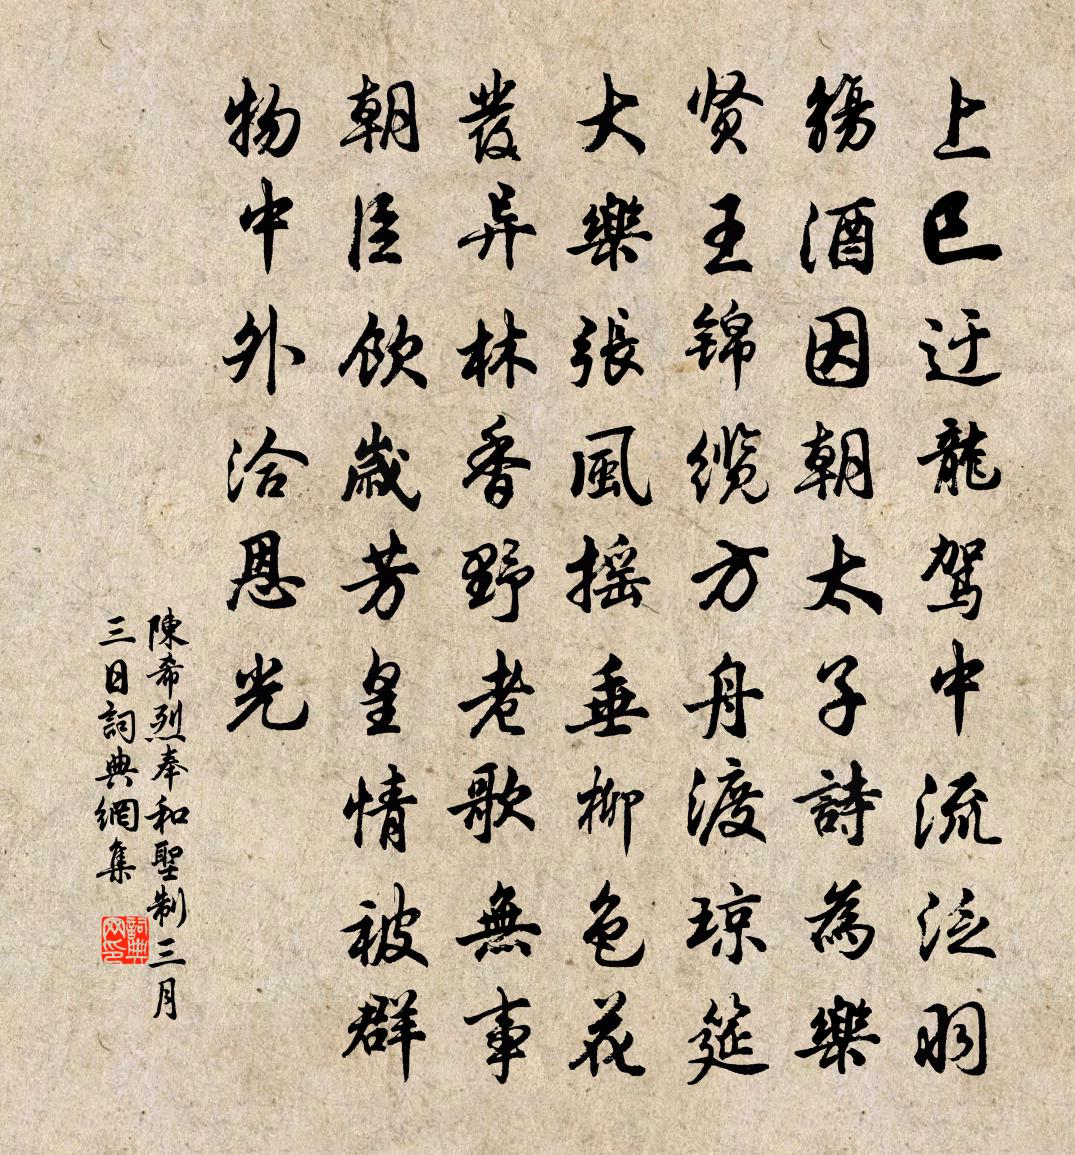 上巳迂龍駕中流泛羽
觴酒因朝太子詩為樂
贤王锦缆方舟渡琼筵
大樂張風摇垂柳色花
發异林香野老歌無事
朝臣飲歲芳皇情被群
物中外洽恩光
陳希烈奉和聖制三月
三日詞典網集
詞典
网印